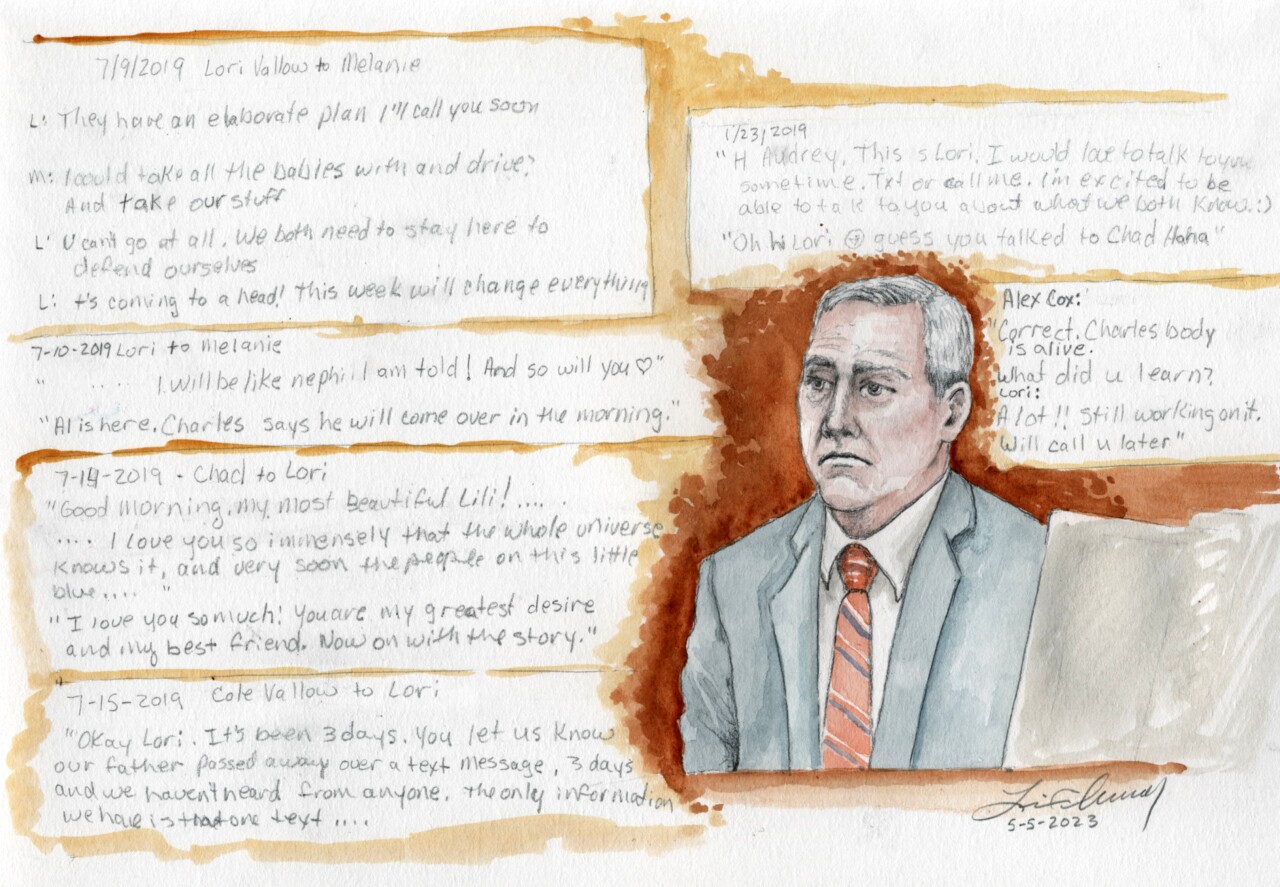 7/9/2019 Lori Vallow to Melanie
L: They have an elaborate plan I'll call you soon
M: I could take all the babies with and drive?
And take our stuff
L: U can't go at all. We both need to stay here to
defend ourselves
L: It's coming to a head! This week will change everything
7-10-2019 Lori to Melanie
" .. . . I will be like nephi I am told! And so will you ♡"
"Al is here. Charles says he will come over in the morning."
7-14-2019 - Chad to Lori
"Good morning, my most beautiful Lili! .... .
.... I love you so immensely that the whole universe
knows it, and very soon the people on this little
blue.... "
"I love you so much! You are my greatest desire
and my best friend. Now on with the story."
7-15-2019 Cole Vallow to Lori
"Okay Lori. It's been 3 days. You let us know
our father passed away over a text message, 3 days
and we haven't heard from anyone. The only information
we have is that one text ....
1/23/2019
"H Audrey. This is Lori. I would love to talk to you
sometime. Txt or call me. I'm excited to be
able to talk to you about what we both know. :)
"Oh hi Lori guess you talked to Chad Haha"
Alex Cox:
"Correct. Charles body
is alive.
What did u learn?
Lori:
A lot!! Still working on it.
Will call u later"
5-5-2023